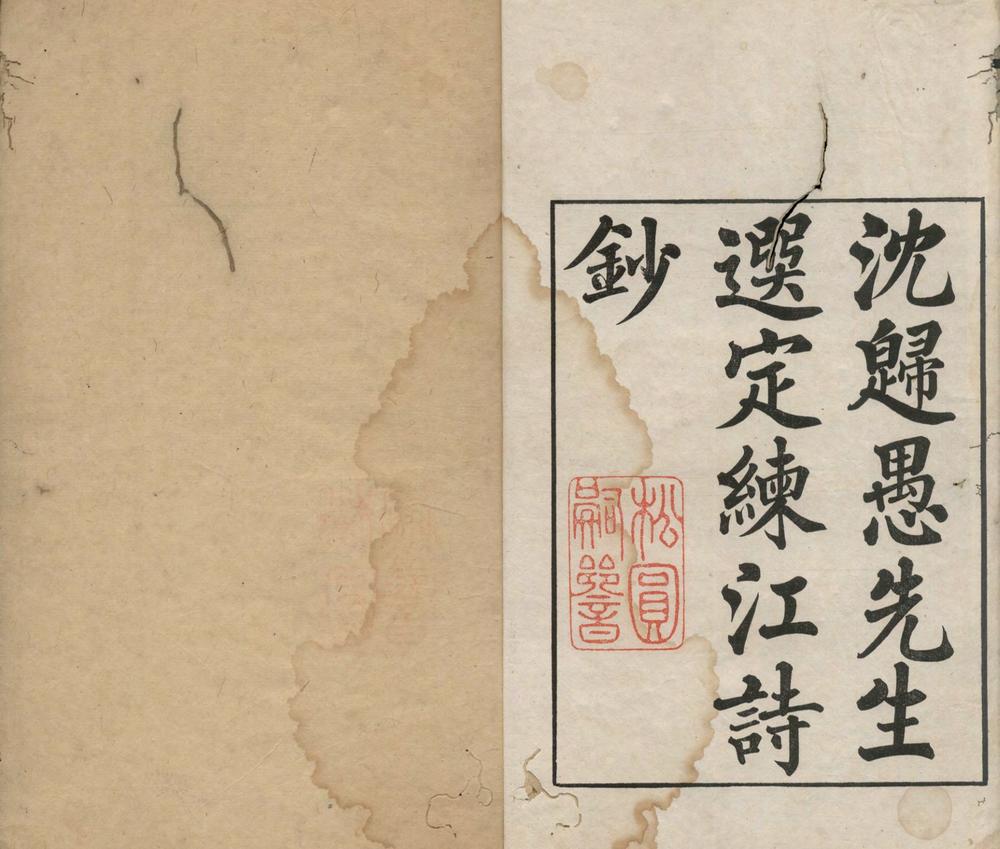 沈歸愚先生
選定練江詩
鈔
松圓
嗣音